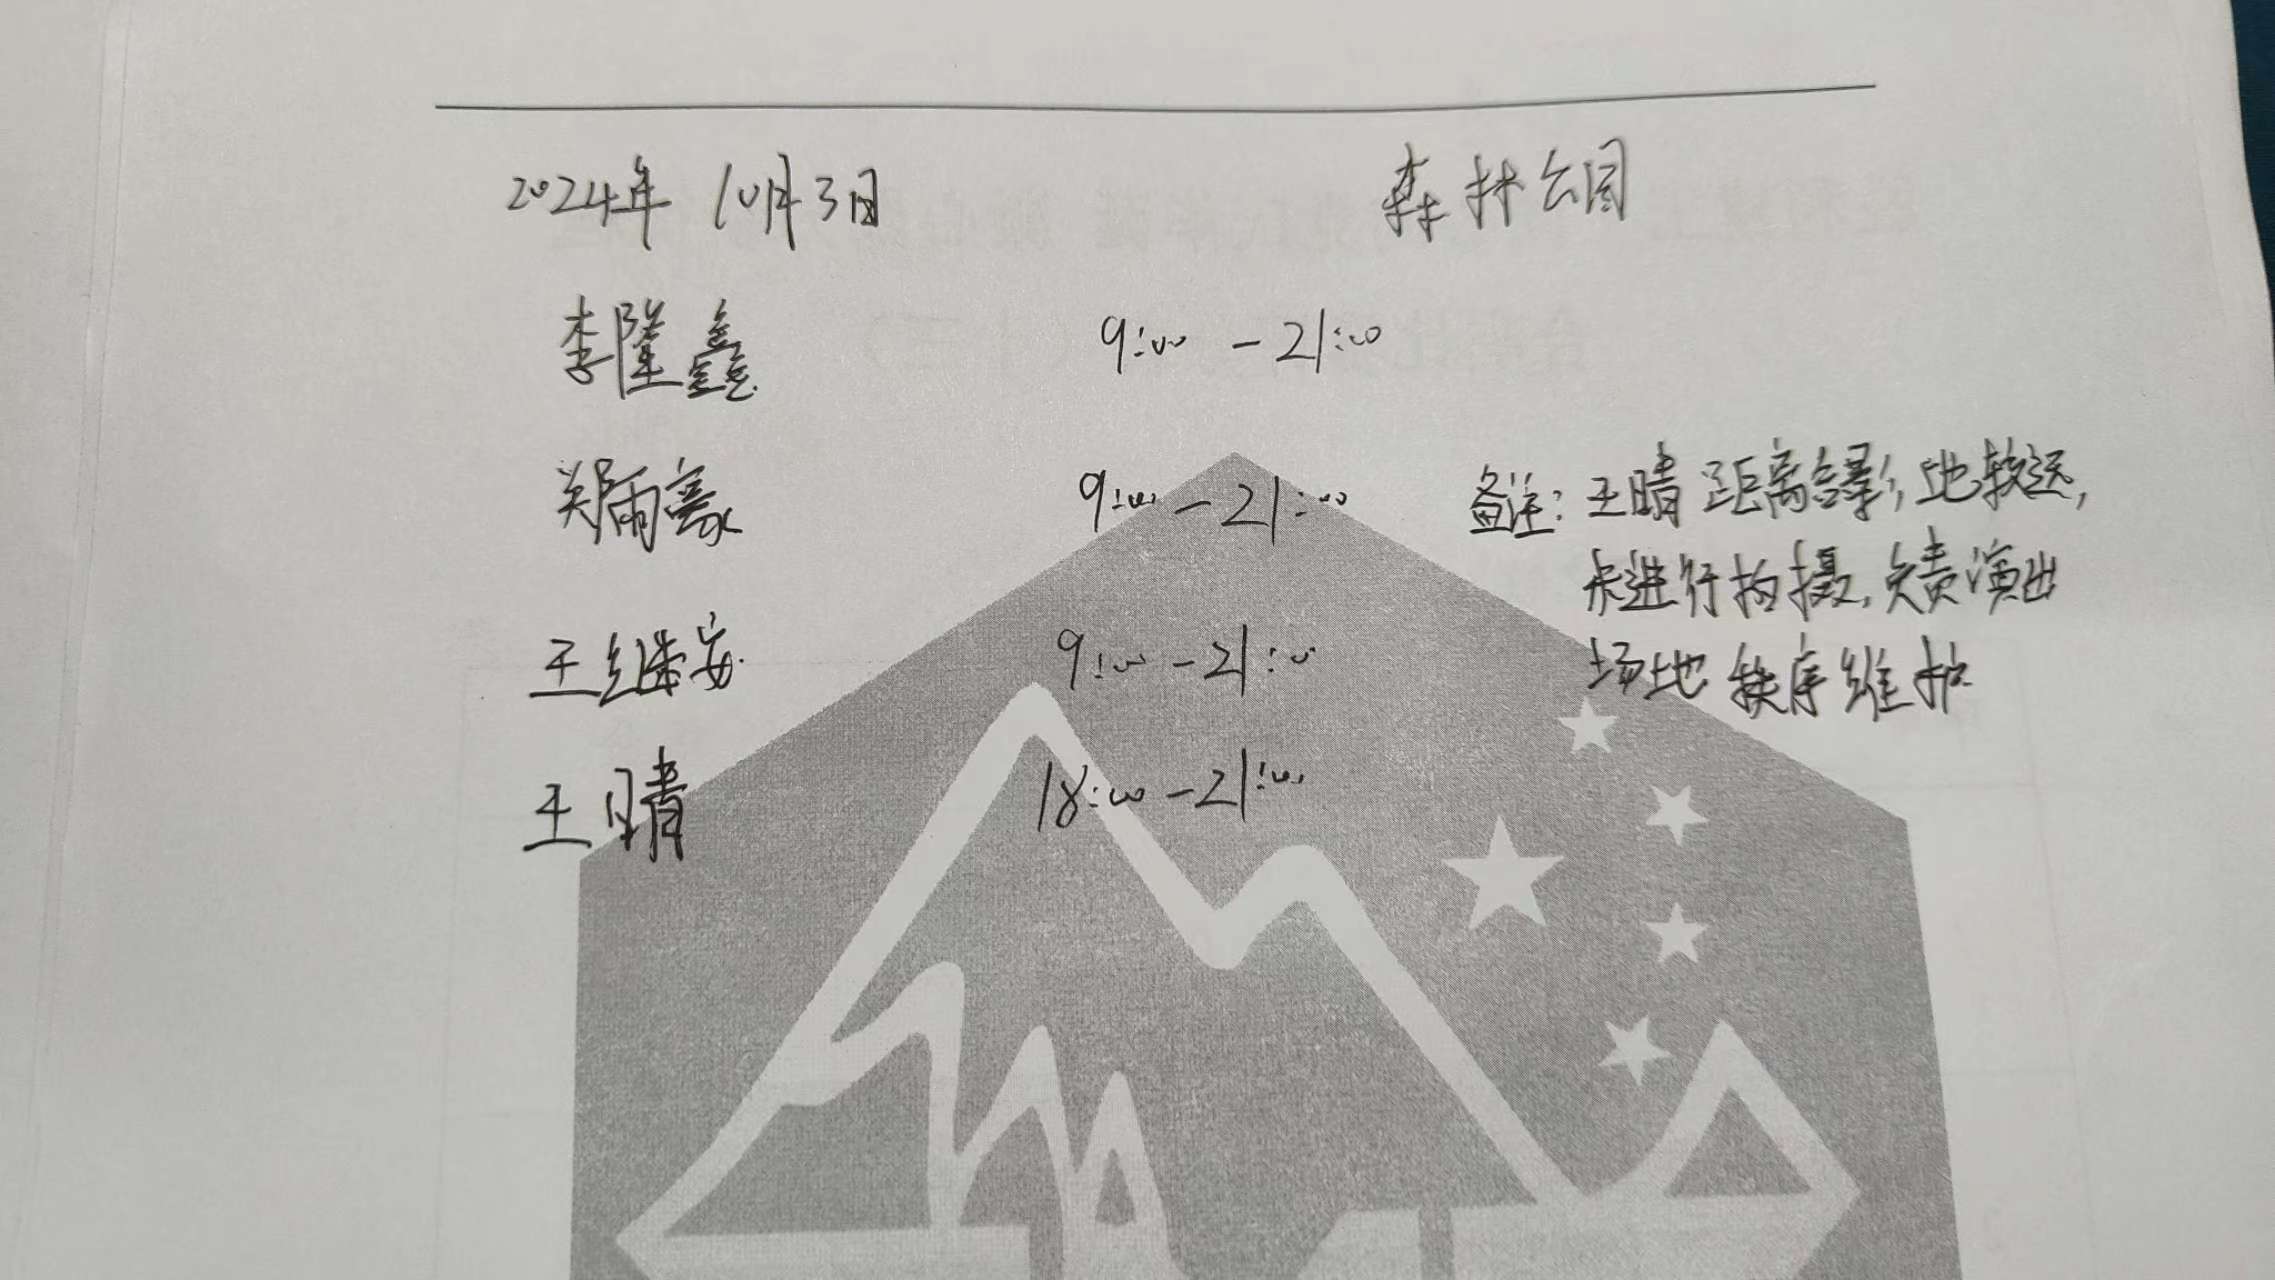 2024年 10月3日 森林公园
李隆鑫 9:00 - 21:00
郑雨豪 9:00 - 21:00
王继安 9:00 - 21:00
王晴 18:00 - 21:00
备注: 王晴距离合影地较远,
未进行拍摄,负责演出
场地秩序维护